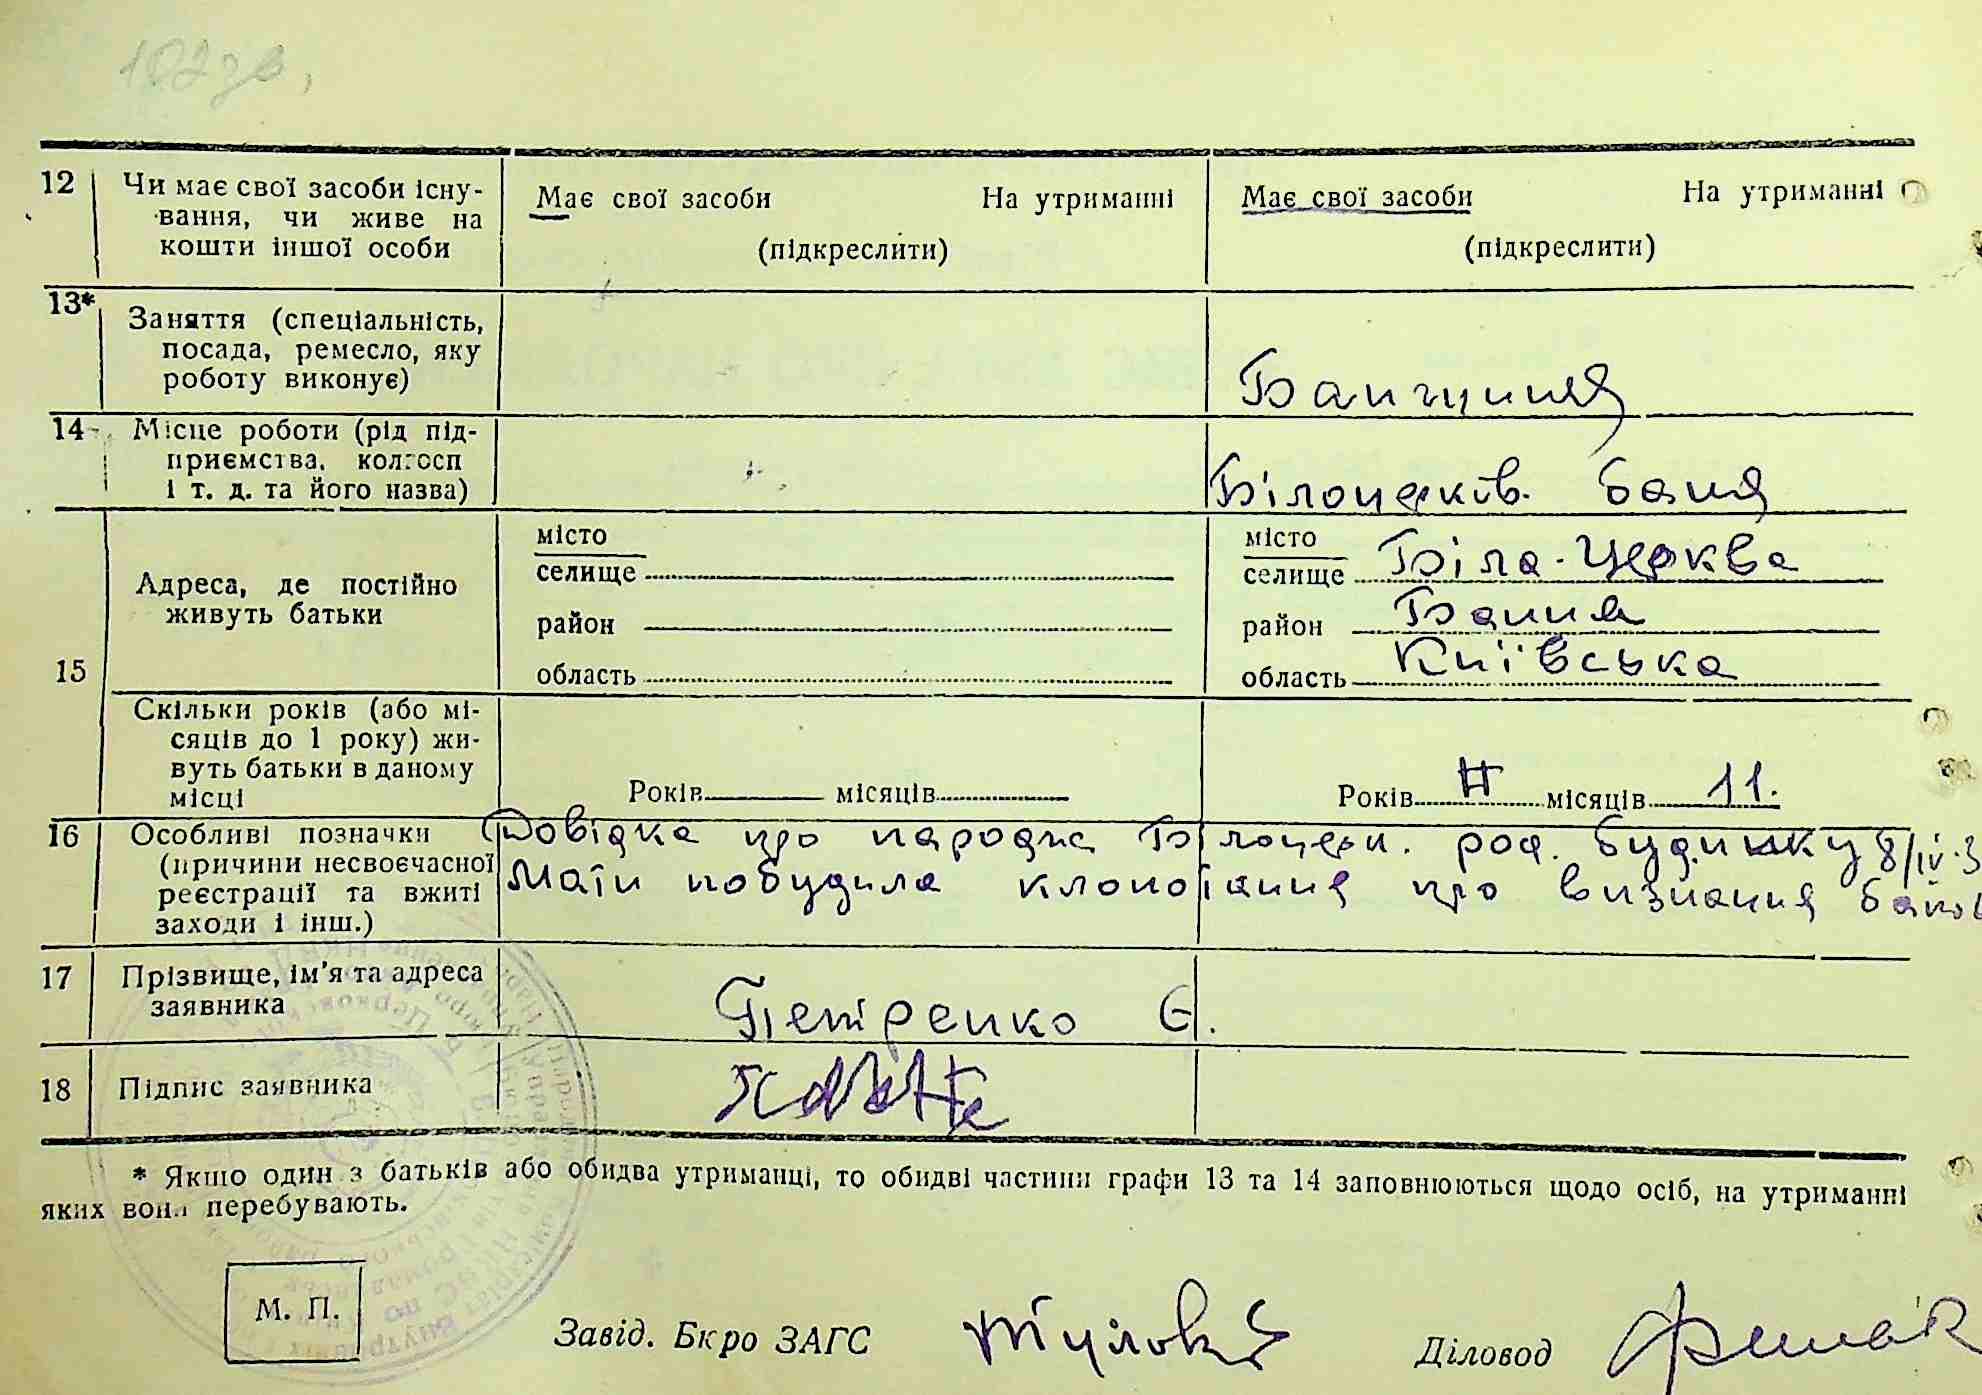 102 зв,
12 Чи має свої засоби існу-
вання, чи живе на
кошти іншої особи
Має свої засоби На утриманні
(підкреслити)
Має свої засоби На утриманні
(підкреслити)
13* Заняття (спеціальність,
посада, ремесло, яку
роботу виконує)
Банщиця
14 Місце роботи (рід під-
приємства, колгосп
і т. д. та його назва)
Білоцерків. баня
15 Адреса, де постійно
живуть батьки
місто
селище
район
область
місто
селище Біла-Церква
район Банна
область Київська
Скільки років (або мі-
сяців до 1 року) жи-
вуть батьки в даному
місці
Років місяців
Років місяців 11.
16 Особливі позначки
(причини несвоєчасної
реєстрації та вжиті
заходи і інш.)
Довідка про народж Білоцерк. род. будинку 8/IV.3
Мати побудила клопотання про визнання батьк
17 Прізвище, ім'я та адреса
заявника
Петренко Є.
18 Підпис заявника
* Якщо один з батьків або обидва утриманці, то обидві частини графи 13 та 14 заповнюються щодо осіб, на утриманні
яких вони перебувають.
М. П.
Завід. Бюро ЗАГС
Діловод